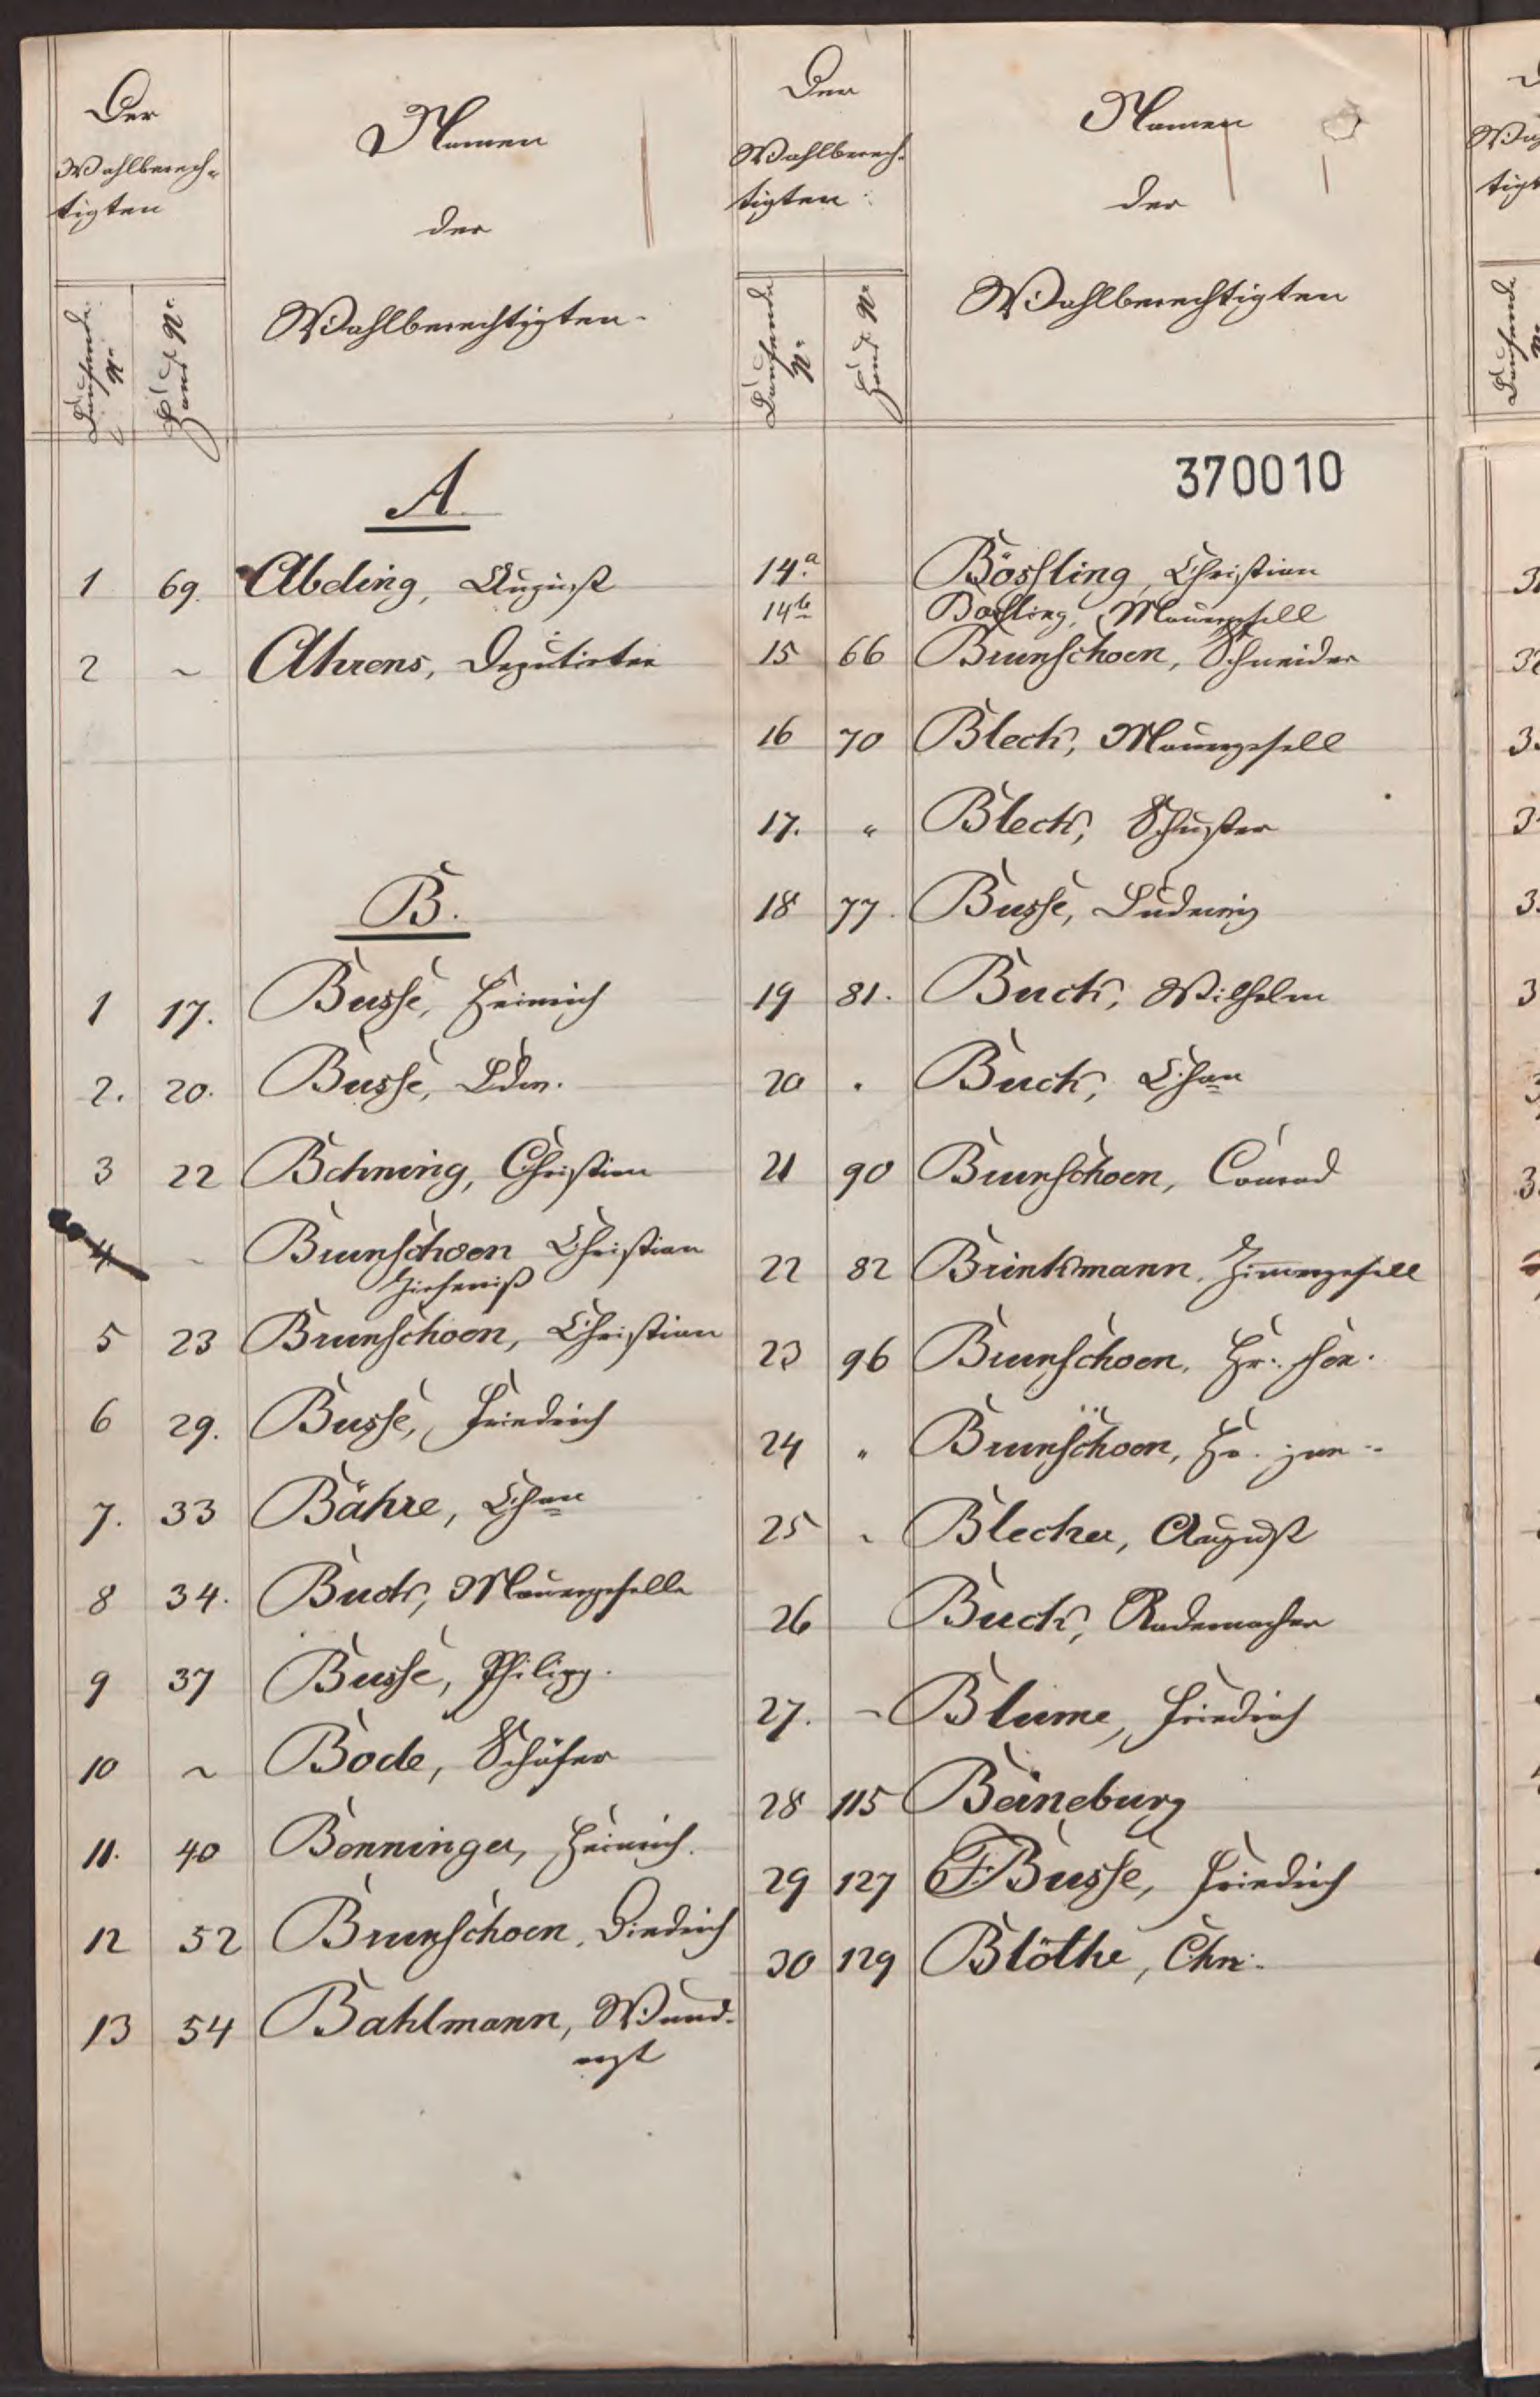 Der
Wahlberech-
tigten
Laufende
Nr.
Haus Nr.
Namen
der
Wahlberechtigten
A.
1 69. Abeling, August
2 ~ Ahrens, Deputirter
B.
1 17. Busse, Heinrich
2. 20. Busse, Ldw.
3 22 Behning, Christian
4 ~ Brunschoen Christian
5 23 Brunschoen, Christian
6 29. Busse, Friedrich
7. 33 Bähre, Chan
8 34. Buck, Mauergeselle
9 37 Busse, Philipp.
10 ~ Bode, Schäfer
11. 40 Bonninger, Heinrich.
12 52 Brunschoen, Diedrich
13 54 Bahlmann, Wund-
arzt
Der
Wahlberech-
tigten
Laufende
Nr.
Haus Nr.
Namen
der
Wahlberechtigten
370010
14.a Bössling, Christian
14b Bössling, Mauergesell
15 66 Brunschoen, Schneider
16 70 Bleck, Mauergesell
17. " Bleck, Schuster
18 77. Busse, Ludewig
19 81. Buck, Wilhelm
20 " Buck, Chan
21 90 Brunschoen, Conrad
22 82 Brinkmann, Zimmergesell
23 96 Brunschoen, Hr. sen.
24 " Brunschoen, Hr. jun.
25 " Blecker, August
26 Buck, Rademacher
27. ~ Blume, Friedrich
28 115 Beineburg
29 127 F. Busse, Friedrich
30 129 Blöthe, Chr.